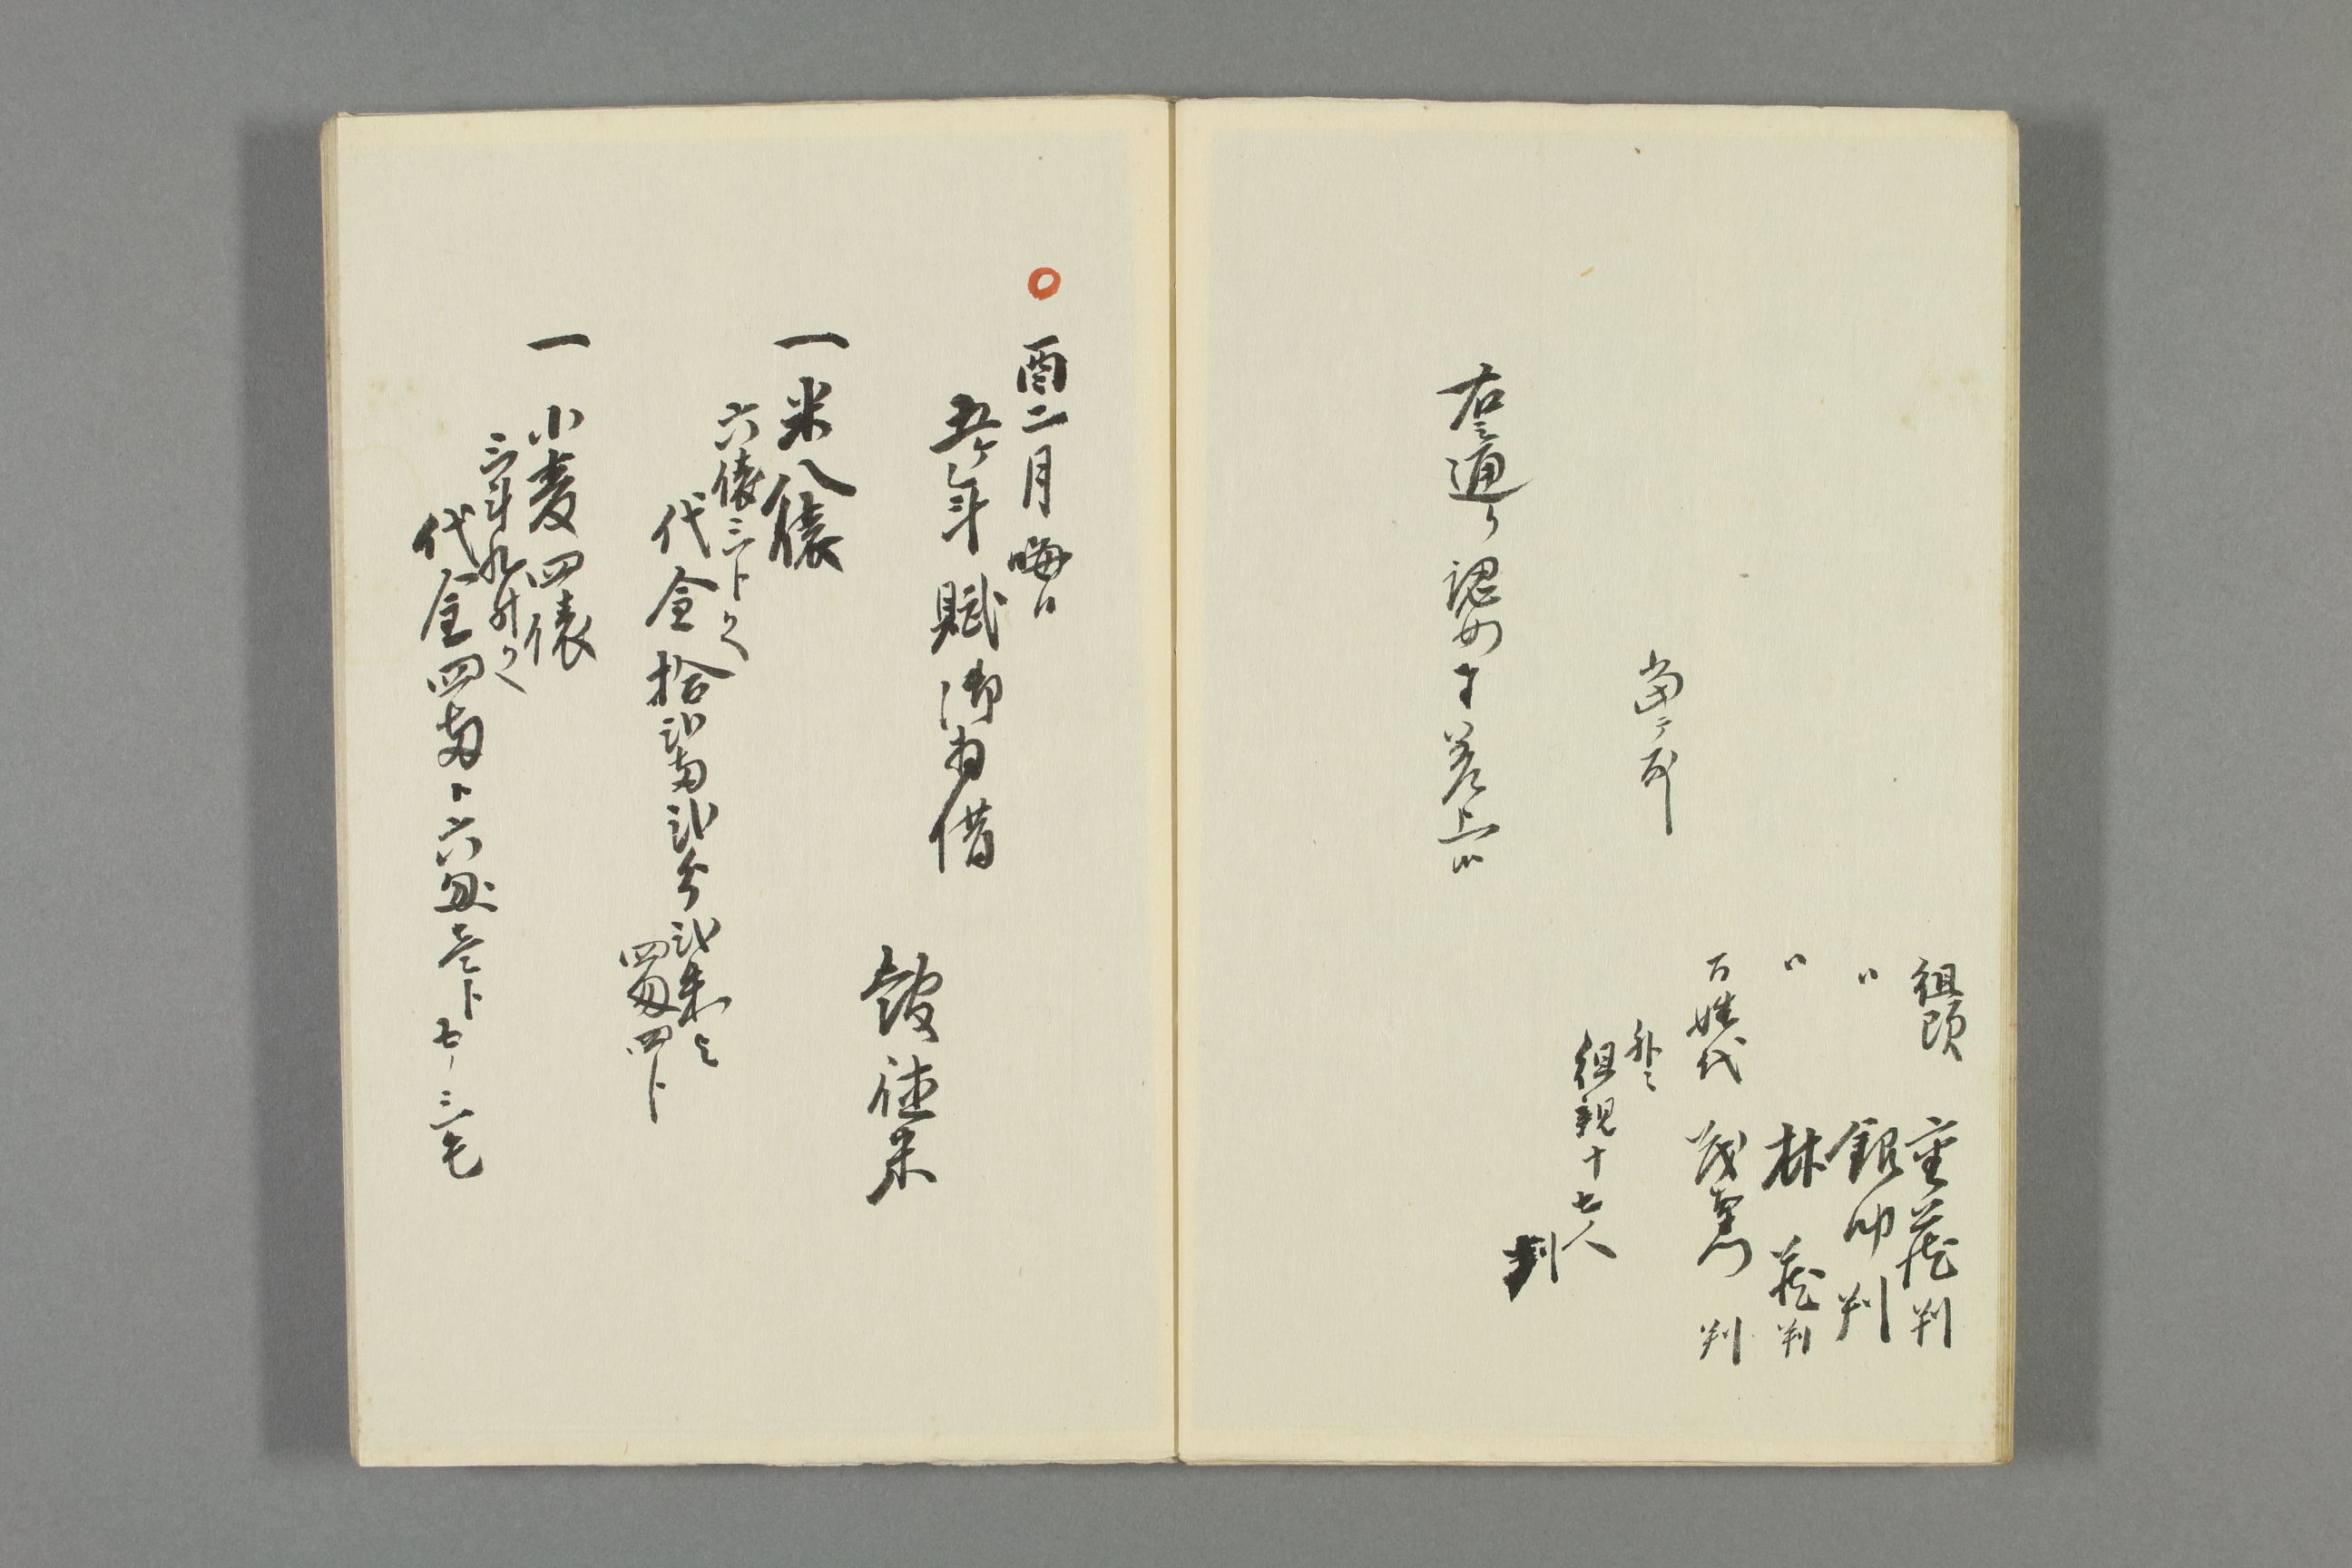 組頭 重蔵 判
〃 銀力 判
〃 林蔵 判
百姓代 茂右衛門 判
外ニ
組親十七人
判
当ヶ所
右之通り認メ 差上候
○酉二月晦日
五ヶ年賦御拝借
一米八俵
六俵三ト久
代金拾弐両弐分弐朱ト
四匁四ト
一小麦四俵
三斗九升入
代金四両ト六匁壱ト七リ三毛